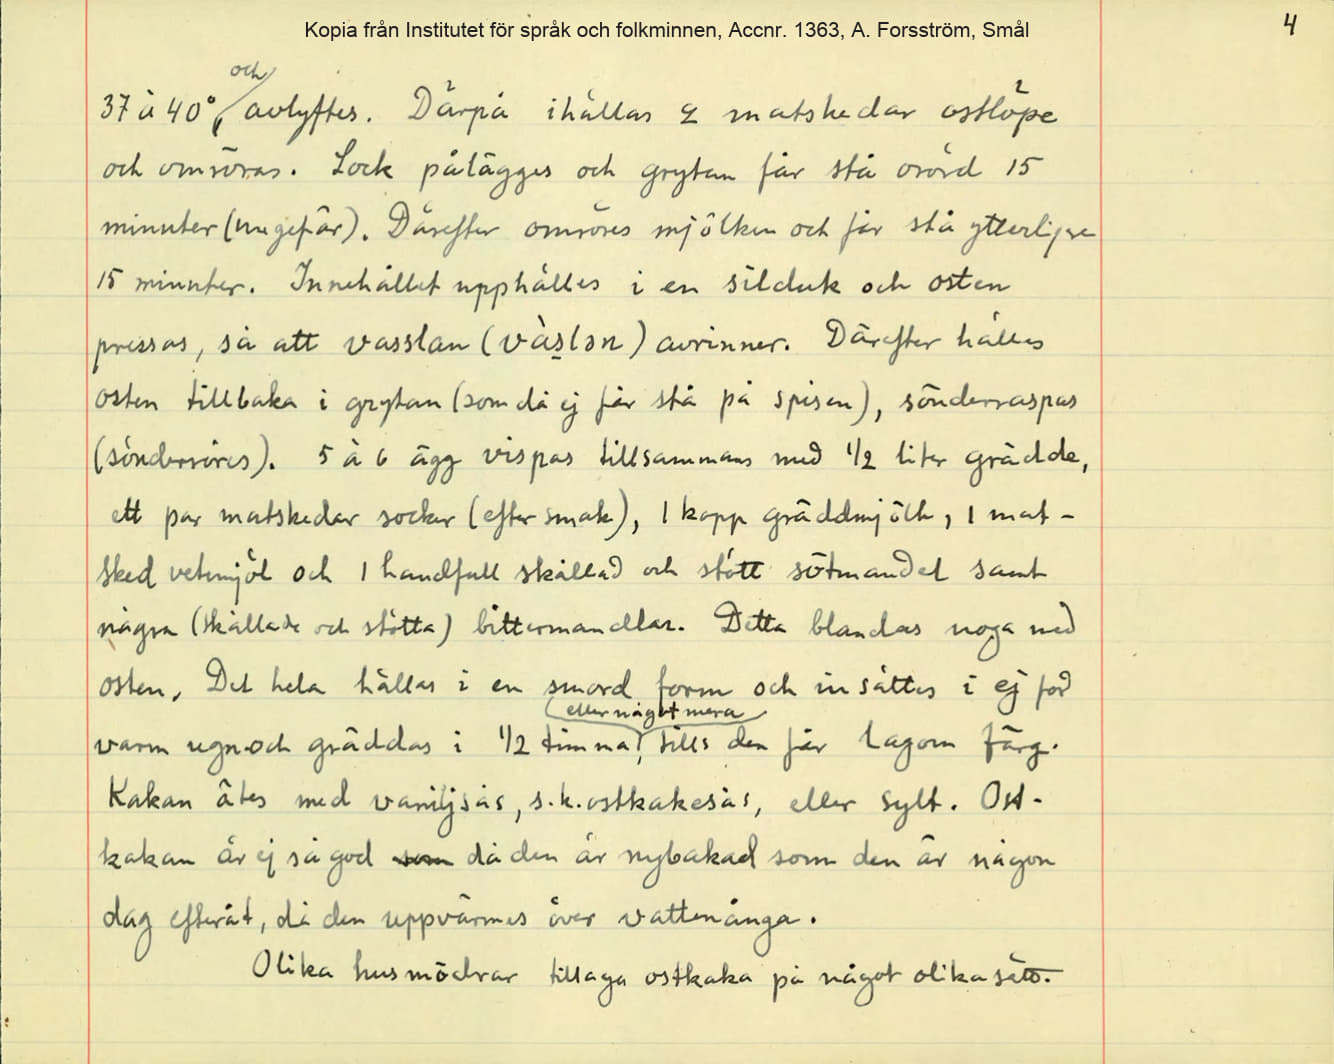 Kopia från Institutet för språk och folkminnen, Accnr. 1363, A. Forsström, Smål
4
37 à 40°, och avlyftes. Därpå ihällas 2 matskedar ostlöpe
och omröras. Lock pålägges och grytan får stå orörd 15
minuter (ungefär). Därefter omröres mjölken och får stå ytterligare
15 minuter. Innehållet upphälles i en silduk och osten
pressas, så att vasslan (vàslən) avrinner. Därefter hälles
osten tillbaka i grytan (som då ej får stå på spisen), sönderraspas
(sönderröres). 5 à 6 ägg vispas tillsammans med 1/2 liter grädde,
ett par matskedar socker (efter smak), 1 kopp gräddmjölk, 1 mat-
sked vetemjöl och 1 handfull skållad och stött sötmandel samt
några (skållade och stötta) bittermandlar. Detta blandas noga med
osten. Det hela hälles i en smord form och insättes i ej för
varm ugn och gräddas i 1/2 timma (eller något mera), tills den får lagom färg.
Kakan ätes med vaniljsås, s.k. ostkakesås, eller sylt. Ost-
kakan är ej så god som då den är nybakad som den är någon
dag efteråt, då den uppvärmes över vattenånga.
Olika husmödrar tillaga ostkaka på något olika sätt.